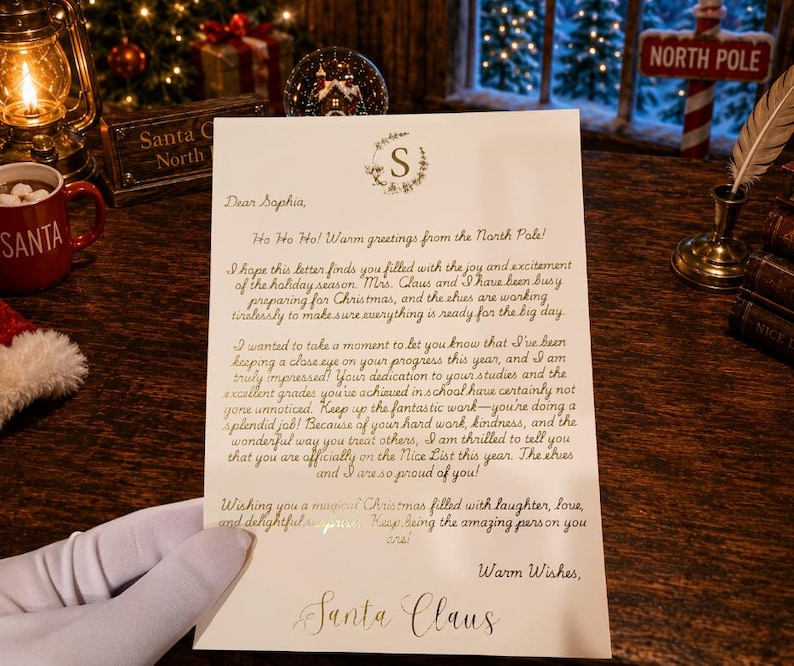 NORTH POLE
Santa C
North
SANTA
NICE
S
Dear Sophia,
Ho Ho Ho! Warm greetings from the North Pole!
I hope this letter finds you filled with the joy and excitement
of the holiday season. Mrs. Claus and I have been busy
preparing for Christmas, and the elves are working
tirelessly to make sure everything is ready for the big day.
I wanted to take a moment to let you know that I've been
keeping a close eye on your progress this year, and I am
truly impressed! Your dedication to your studies and the
excellent grades you've achieved in school have certainly not
gone unnoticed. Keep up the fantastic work—you're doing a
splendid job! Because of your hard work, kindness, and the
wonderful way you treat others, I am thrilled to tell you
that you are officially on the Nice List this year. The elves
and I are so proud of you!
Wishing you a magical Christmas filled with laughter, love,
and delightful surprises. Keep being the amazing person you
are!
Warm Wishes,
Santa Claus